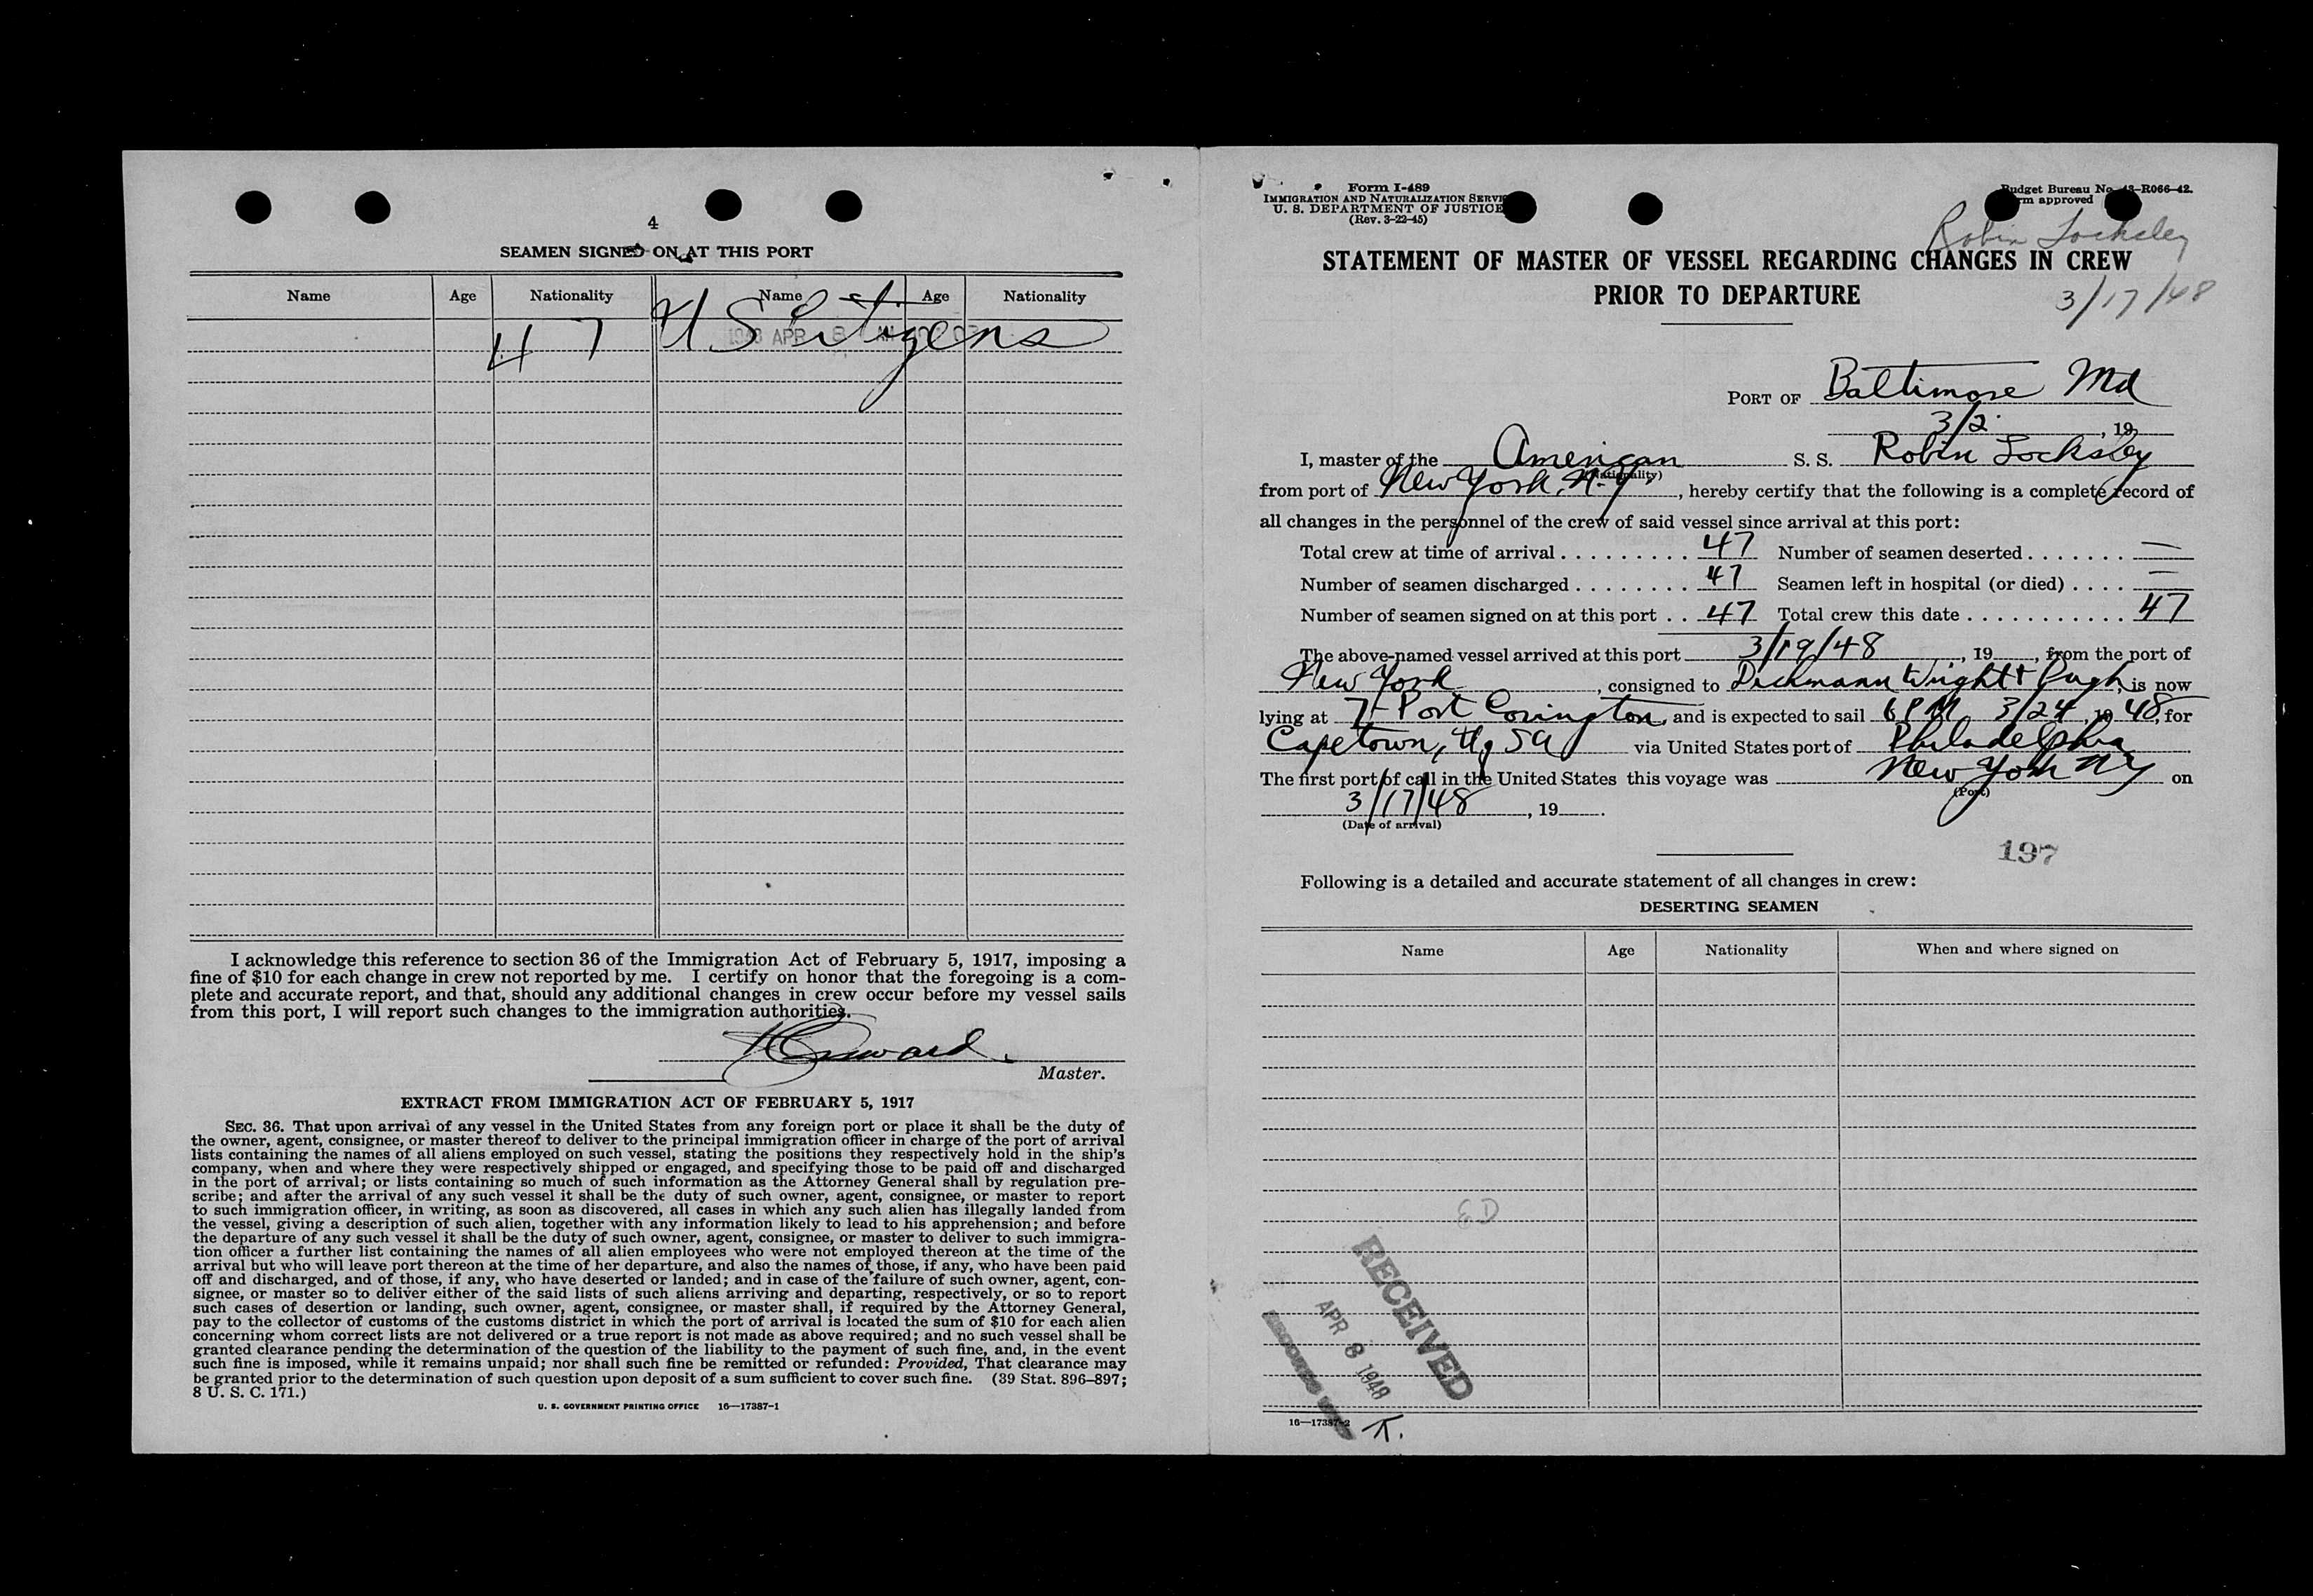 4
SEAMEN SIGNED ON AT THIS PORT
Name Age Nationality Name Age Nationality
47 US Citizens
1948 APR 8 AM
I acknowledge this reference to section 36 of the Immigration Act of February 5, 1917, imposing a
fine of $10 for each change in crew not reported by me. I certify on honor that the foregoing is a com-
plete and accurate report, and that, should any additional changes in crew occur before my vessel sails
from this port, I will report such changes to the immigration authorities.
Master.
EXTRACT FROM IMMIGRATION ACT OF FEBRUARY 5, 1917
SEC. 36. That upon arrival of any vessel in the United States from any foreign port or place it shall be the duty of
the owner, agent, consignee, or master thereof to deliver to the principal immigration officer in charge of the port of arrival
lists containing the names of all aliens employed on such vessel, stating the positions they respectively hold in the ship's
company, when and where they were respectively shipped or engaged, and specifying those to be paid off and discharged
in the port of arrival; or lists containing so much of such information as the Attorney General shall by regulation pre-
scribe; and after the arrival of any such vessel it shall be the duty of such owner, agent, consignee, or master to report
to such immigration officer, in writing, as soon as discovered, all cases in which any such alien has illegally landed from
the vessel, giving a description of such alien, together with any information likely to lead to his apprehension; and before
the departure of any such vessel it shall be the duty of such owner, agent, consignee, or master to deliver to such immigra-
tion officer a further list containing the names of all alien employees who were not employed thereon at the time of the
arrival but who will leave port thereon at the time of her departure, and also the names of those, if any, who have been paid
off and discharged, and of those, if any, who have deserted or landed; and in case of the failure of such owner, agent, con-
signee, or master so to deliver either of the said lists of such aliens arriving and departing, respectively, or so to report
such cases of desertion or landing, such owner, agent, consignee, or master shall, if required by the Attorney General,
pay to the collector of customs of the customs district in which the port of arrival is located the sum of $10 for each alien
concerning whom correct lists are not delivered or a true report is not made as above required; and no such vessel shall be
granted clearance pending the determination of the question of the liability to the payment of such fine, and, in the event
such fine is imposed, while it remains unpaid; nor shall such fine be remitted or refunded: Provided, That clearance may
be granted prior to the determination of such question upon deposit of a sum sufficient to cover such fine. (39 Stat. 896–897;
8 U. S. C. 171.)
U. S. GOVERNMENT PRINTING OFFICE 16—17387-1
Form I-489
IMMIGRATION AND NATURALIZATION SERVI
U. S. DEPARTMENT OF JUSTICE
(Rev. 3-22-45)
Budget Bureau No. 43-R066-42.
rm approved
Robin Locksley
3/17/48
STATEMENT OF MASTER OF VESSEL REGARDING CHANGES IN CREW
PRIOR TO DEPARTURE
PORT OF Baltimore Md
3/2 , 19
I, master of the American S. S. Robin Locksley
(Nationality)
from port of New York, N.Y , hereby certify that the following is a complete record of
all changes in the personnel of the crew of said vessel since arrival at this port:
Total crew at time of arrival . . . . . . . . . 47 Number of seamen deserted . . . . . . . —
Number of seamen discharged . . . . . . . . 47 Seamen left in hospital (or died) . . . . —
Number of seamen signed on at this port . . 47 Total crew this date . . . . . . . . . . . 47
The above-named vessel arrived at this port 3/19/48 , 19 , from the port of
New York , consigned to Dichmann Wright & Pugh, is now
lying at 7- Port Covington, and is expected to sail 6 PM 3/24, 19 48, for
Capetown, SA via United States port of Philadelphia
The first port of call in the United States this voyage was New York NY on
(Port)
3/17/48 , 19 .
(Date of arrival)
197
Following is a detailed and accurate statement of all changes in crew:
DESERTING SEAMEN
Name Age Nationality When and where signed on
ED
RECEIVED
APR 8 1948
K.
16—17387-2